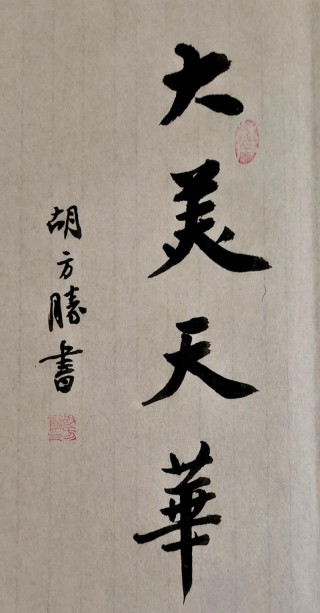 大美天華
胡方勝書